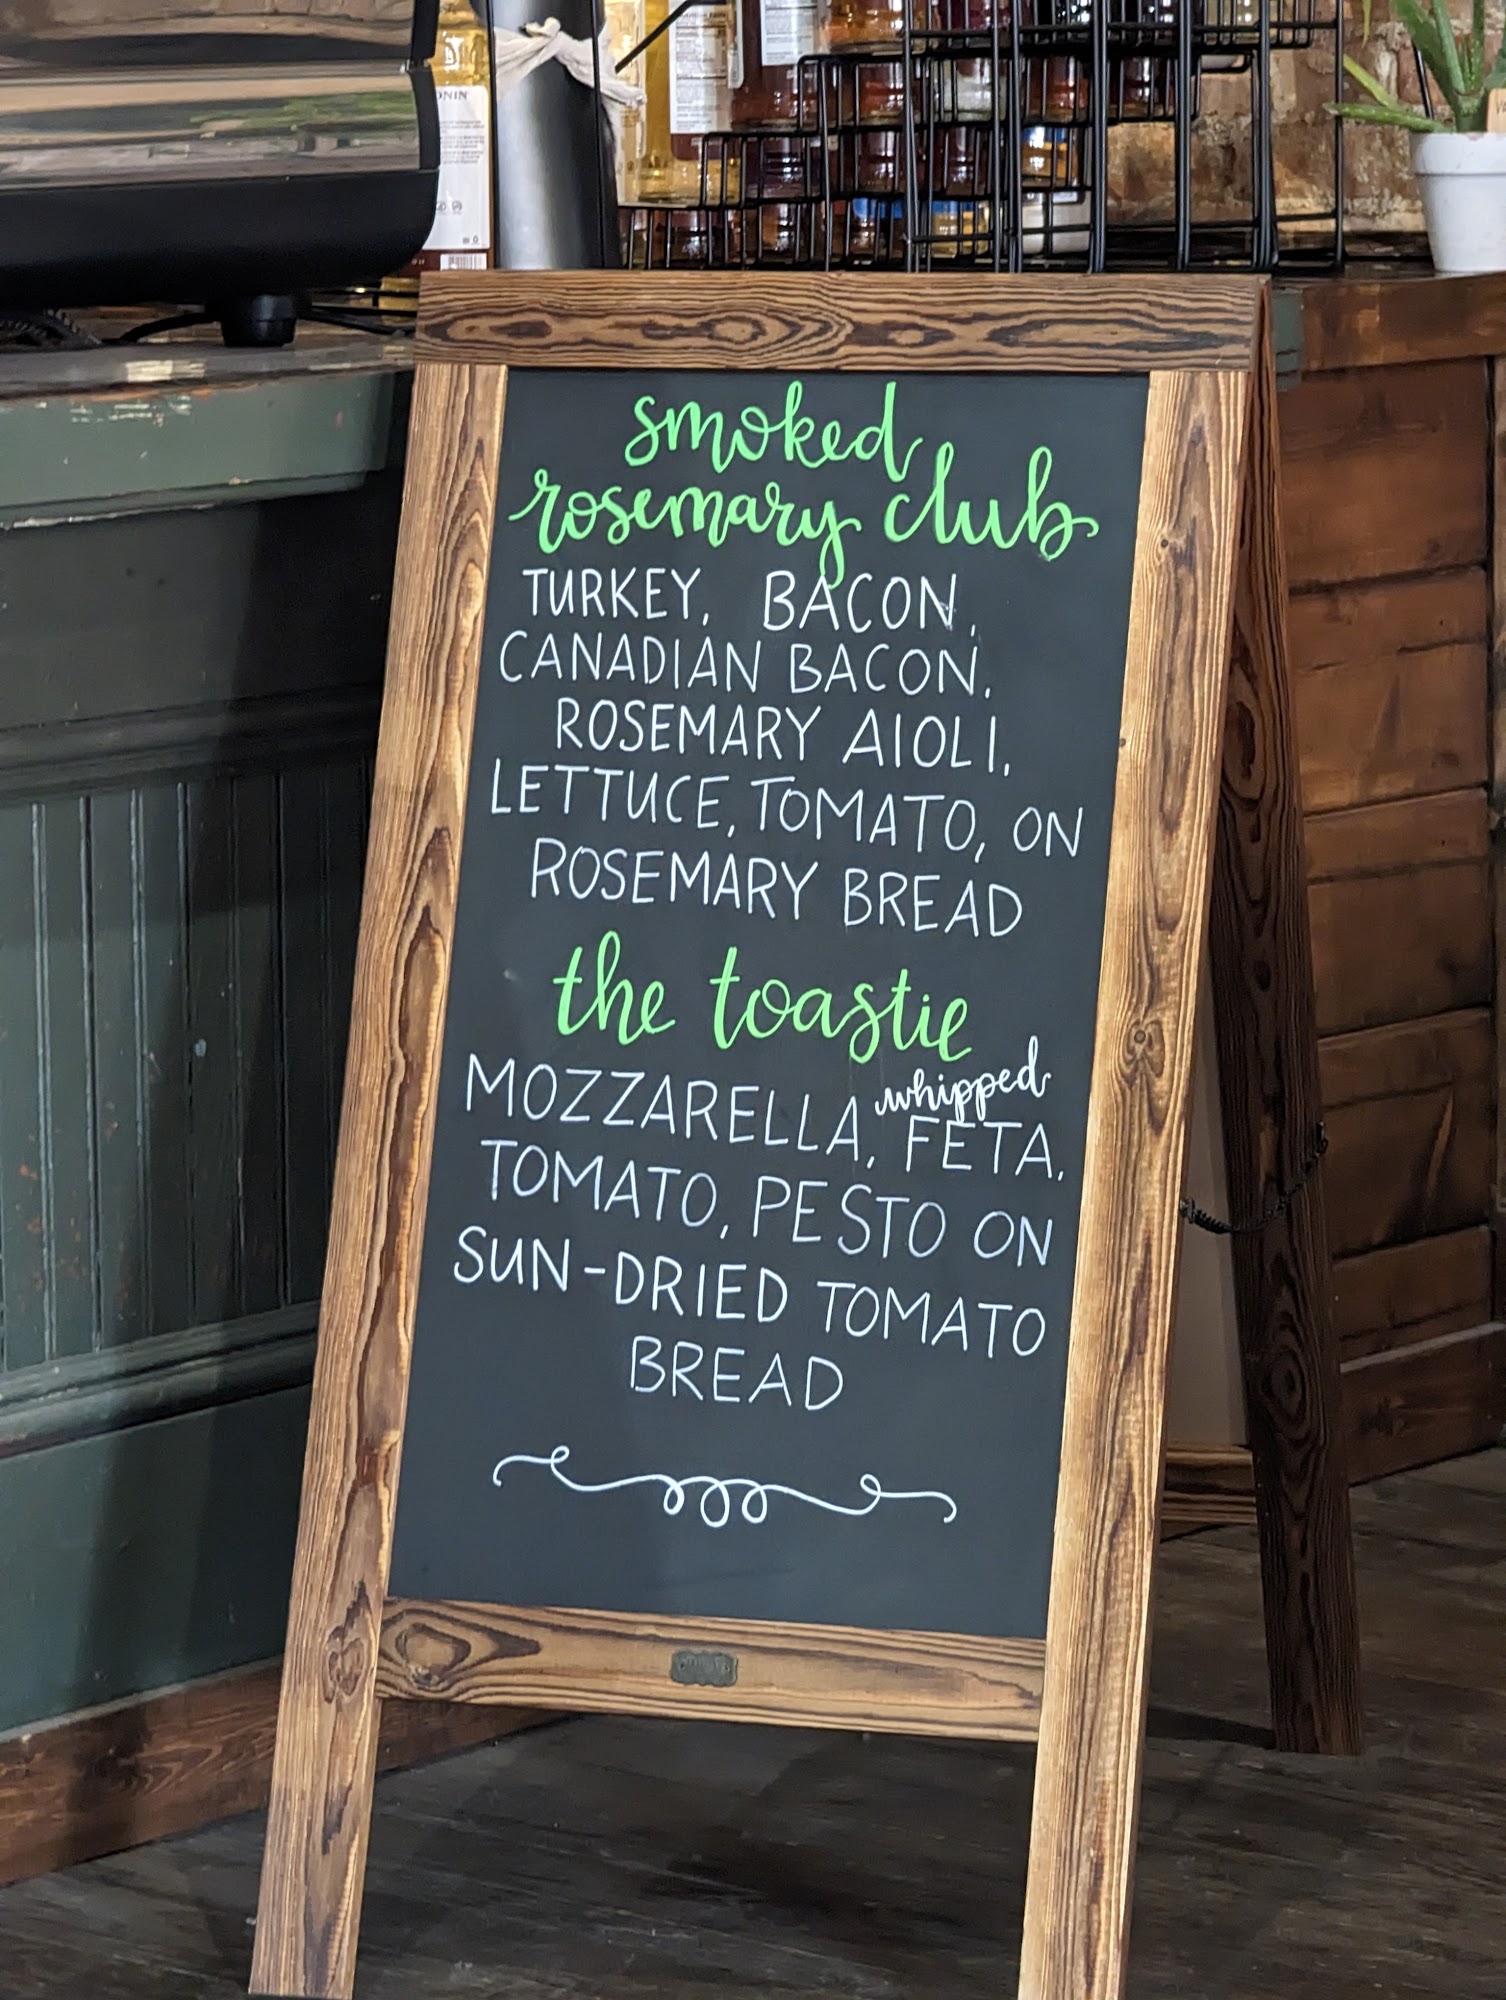 smoked
rosemary club
TURKEY, BACON,
CANADIAN BACON,
ROSEMARY AIOLI,
LETTUCE, TOMATO, ON
ROSEMARY BREAD
the toastie
whipped
MOZZARELLA, FETA,
TOMATO, PESTO ON
SUN-DRIED TOMATO
BREAD